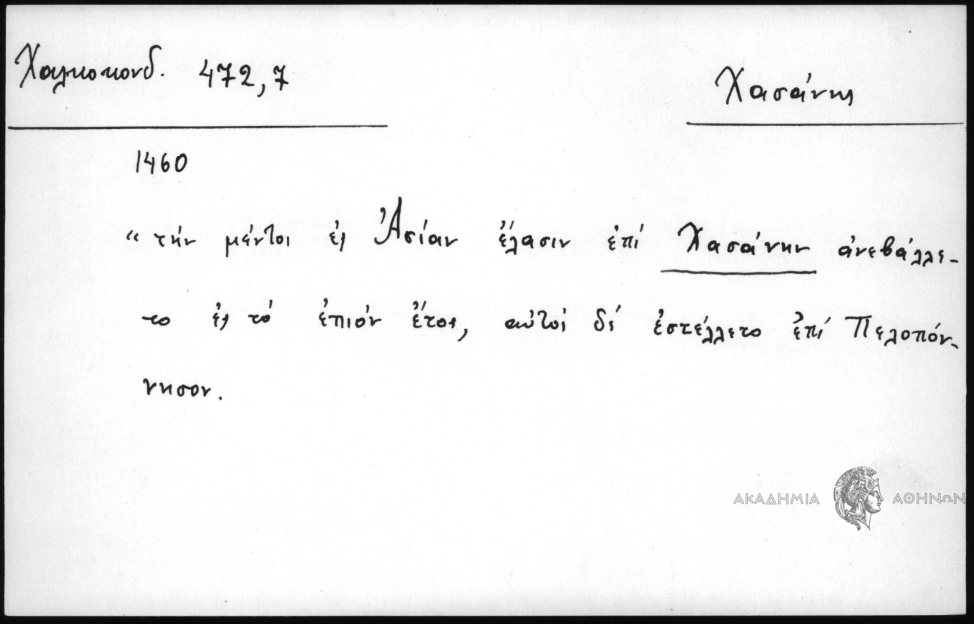 Χαλκοκονδ. 472,7
Χασάνης
1460
"τὴν μέντοι ἐς Ἀσίαν ἔλασιν ἐπὶ Χασάνην ἀνεβάλλε-
το ἐς τὸ ἐπιὸν ἔτος, αὐτοὶ δὲ ἐστέλλετο ἐπὶ Πελοπόν-
νησον.
ΑΚΑΔΗΜΙΑ ΑΘΗΝΩΝ